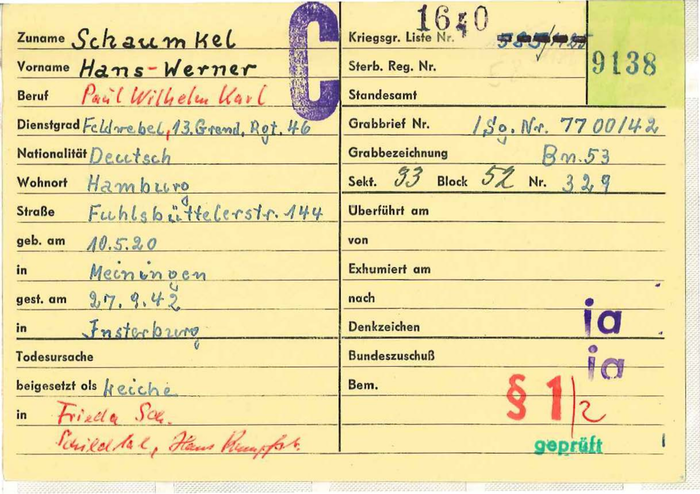 C
1640
Zuname Schaumkel
Vorname Hans-Werner
Beruf Paul Wilhelm Karl
Dienstgrad Feldwebel, 13. Grend. Rgt. 46
Nationalität Deutsch
Wohnort Hamburg
Straße Fuhlsbüttelerstr. 144
geb. am 10.5.20
in Meiningen
gest. am 27.9.42
in Insterburg
Todesursache
beigesetzt als Leiche
in Frieda Sch.
Hans
Kriegsgr. Liste Nr.
Sterb. Reg. Nr.
Standesamt
9138
Grabbrief Nr. /Sg. Nr. 7700/42
Grabbezeichnung Bm. 53
Sekt. 93 Block 52 Nr. 329
Überführt am
von
Exhumiert am
nach
Denkzeichen ja
Bundeszuschuß ja
Bem. § 1/2
geprüft